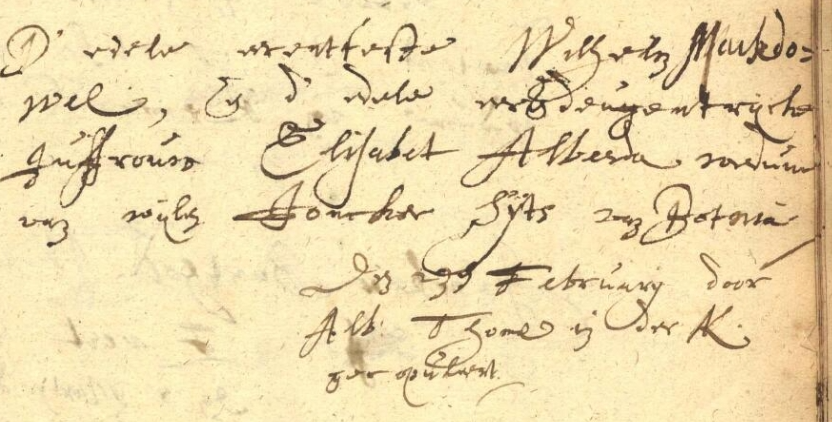 D' edele erentfeste Wilhelm Mackdo=
wel, En d' edele eer& deugentrycke
Juffrouw Elisabet Alberda weduw
van wijlen Joncker Sijts van Botnia
Den 23 February door
Alb. Thome in der A K.
gecopuleert.